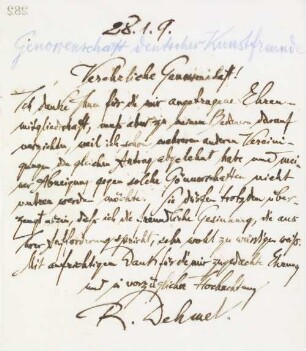 282
28.1.9.
Genossenschaft deutscher Kunstfreunde
Verehrliche Genossenschaft!
Ich danke Ihnen für die mir angetragene Ehren-
mitgliedschaft, muß aber zu meinem Bedauern darauf
verzichten, weil ich schon mehreren anderen Vereini-
gungen den gleichen Antrag abgelehnt habe und mei-
ner Abneigung gegen solche Gemeinschaften nicht
untreu werden möchte. Sie dürfen trotzdem über-
zeugt sein, daß ich die freundliche Gesinnung, die aus
Ihrer Aufforderung spricht, sehr wohl zu würdigen weiß.
Mit aufrichtigem Dank für die mir zugedachte Ehrung
und in vorzüglicher Hochachtung
R. Dehmel.